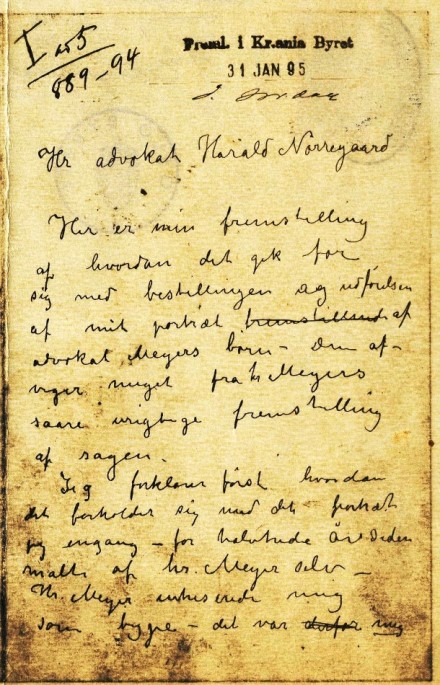 I No 5
889-94
Freml. i Kr.ania Byret
31 JAN 95
Hr advokat Harald Nørregaard
Her er min fremstilling
af hvordan det gik for
sig med bestillingen og udførelsen
af mit portræt af
advokat Meyers børn – Den af-
viger meget fra hr Meyers
saare urigtige fremstilling
af sagen.
Jeg forklarer først hvordan
det forholder sig med det portræt
jeg engang – for halvtredie År siden
malte af hr. Meyer selv –
Hr Meyer mig
som – det var derfor mig